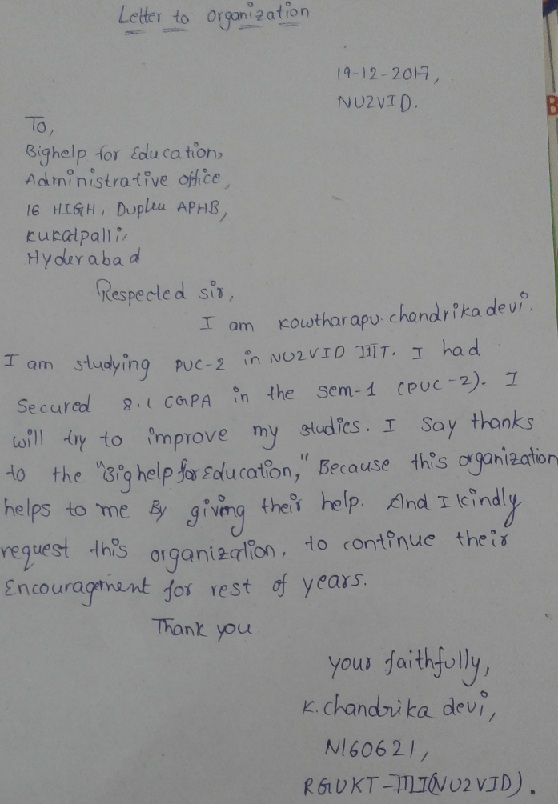 Letter to Organization
19-12-2017,
NUZVID.
To,
Bighelp for Education,
Administrative office,
16 HIGH, Duplex APHB,
Kukatpalli,
Hyderabad
Respected sir,
I am Kowtharapu.chandrika devi.
I am studying PUC-2 in NUZVID IIIT. I had
Secured 8.1 CGPA in the Sem-1 (PUC-2). I
will try to improve my studies. I say thanks
to the "Bighelp for Education," Because this organization
helps to me By giving their help. And I kindly
request this organization. to continue their
Encouragement for rest of years.
Thank you
your faithfully,
K.chandrika devi,
N160621,
RGUKT-IIIT(NUZVID).
B